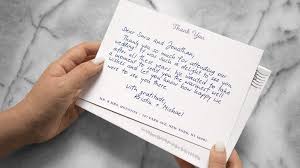 Thank You
Dear Sara and Jonathan,
Thank you so much for attending our
wedding! It was such a delight to see you
after all these years. We wanted to take
and let you know how happy we
were to see you there.
With gratitude,
Kristin + Michael